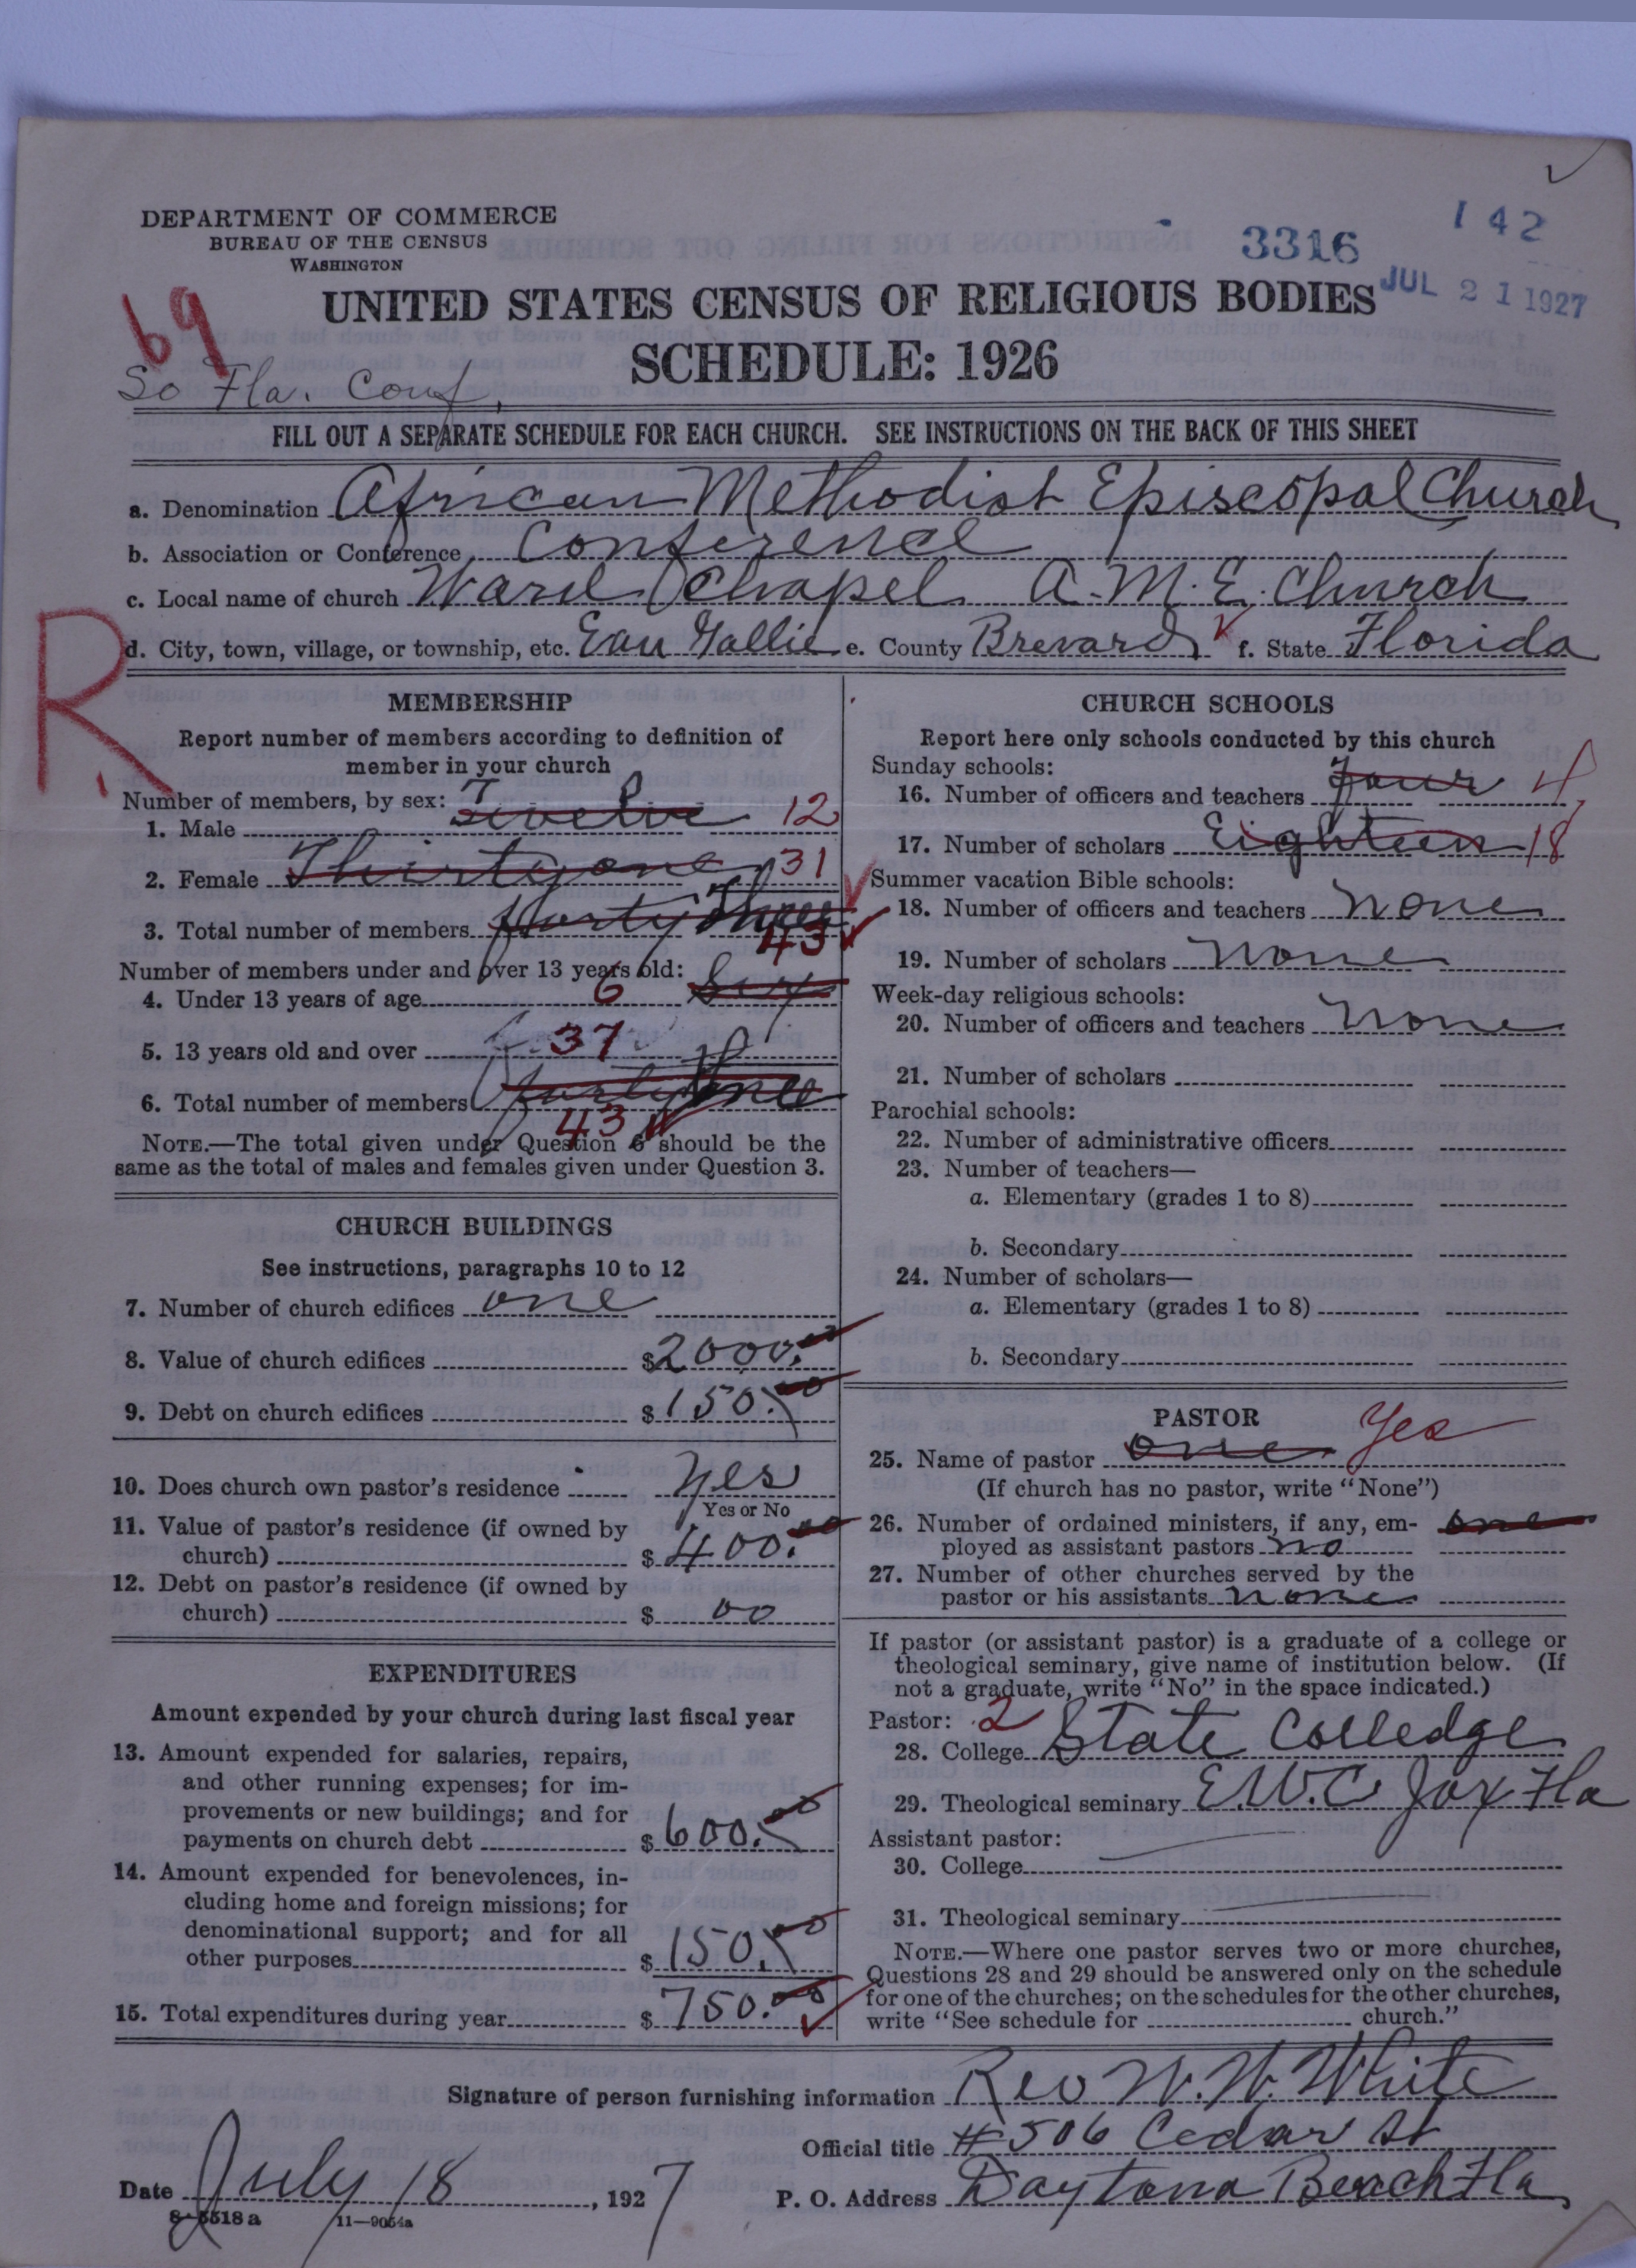 DEPARTMENT OF COMMERCE
BUREAU OF THE CENSUS
WASHINGTON
142
3316
JUL 21 1927
UNITED STATES CENSUS OF RELIGIOUS BODIES
69
SCHEDULE: 1926
So Fla. Conf.
FILL OUT A SEPARATE SCHEDULE FOR EACH CHURCH. SEE INSTRUCTIONS ON THE BACK OF THIS SHEET
a. Denomination African Methodist Episcopal Church
b. Association or Conference Conference
c. Local name of church Ward Chapel A.M.E. Church
d. City, town, village, or township, etc. Eau Gallie e. County Brevard f. State Florida
R
MEMBERSHIP
Report number of members according to definition of
member in your church
Number of members, by sex:
1. Male Twelve 12
2. Female Thirty one 31
3. Total number of members forty Three 43
Number of members under and over 13 years old:
4. Under 13 years of age 6 Six
5. 13 years old and over 37
6. Total number of members 43
NOTE.—The total given under Question 6 should be the
same as the total of males and females given under Question 3.
CHURCH BUILDINGS
See instructions, paragraphs 10 to 12
7. Number of church edifices one
8. Value of church edifices $2000.00
9. Debt on church edifices $150.00
10. Does church own pastor's residence Yes
Yes or No
11. Value of pastor's residence (if owned by
church) $400.00
12. Debt on pastor's residence (if owned by
church) $ 00
EXPENDITURES
Amount expended by your church during last fiscal year
13. Amount expended for salaries, repairs,
and other running expenses; for im-
provements or new buildings; and for
payments on church debt $600.00
14. Amount expended for benevolences, in-
cluding home and foreign missions; for
denominational support; and for all
other purposes $150.00
15. Total expenditures during year $750.00
CHURCH SCHOOLS
Report here only schools conducted by this church
Sunday schools:
16. Number of officers and teachers Four 4
17. Number of scholars Eighteen 18
Summer vacation Bible schools:
18. Number of officers and teachers None
19. Number of scholars None
Week-day religious schools:
20. Number of officers and teachers None
21. Number of scholars
Parochial schools:
22. Number of administrative officers
23. Number of teachers—
a. Elementary (grades 1 to 8)
b. Secondary
24. Number of scholars—
a. Elementary (grades 1 to 8)
b. Secondary
PASTOR
25. Name of pastor one Yes
(If church has no pastor, write "None")
26. Number of ordained ministers, if any, em- one
ployed as assistant pastors no
27. Number of other churches served by the
pastor or his assistants none
If pastor (or assistant pastor) is a graduate of a college or
theological seminary, give name of institution below. (If
not a graduate, write "No" in the space indicated.)
Pastor: 2
28. College State Colledge
29. Theological seminary E.W.C Jax Fla
Assistant pastor:
30. College
31. Theological seminary
NOTE.—Where one pastor serves two or more churches,
Questions 28 and 29 should be answered only on the schedule
for one of the churches; on the schedules for the other churches,
write "See schedule for church."
Signature of person furnishing information Rev W.W. White
Official title #506 Cedar St
Date July 18, 1927
P. O. Address Daytona Beach Fla
8-5518a
11—9054a